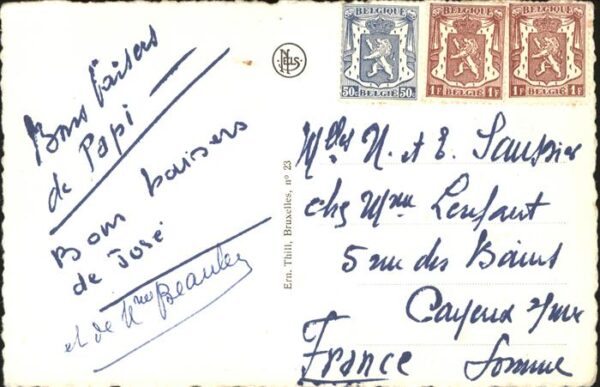 Bons baisers
de Papi —
Bons baisers
de José
et de Mme Beaulez
NELS
Ern. Thill, Bruxelles, n° 23
BELGIQUE
50c BELGIË 50c
BELGIQUE
1F BELGIË 1F
BELGIQUE
1F BELGIË 1F
Mlles N. et E. Saussier
chez Mme Lenfant
5 rue des Bains
Cayeux s/mer
France Somme